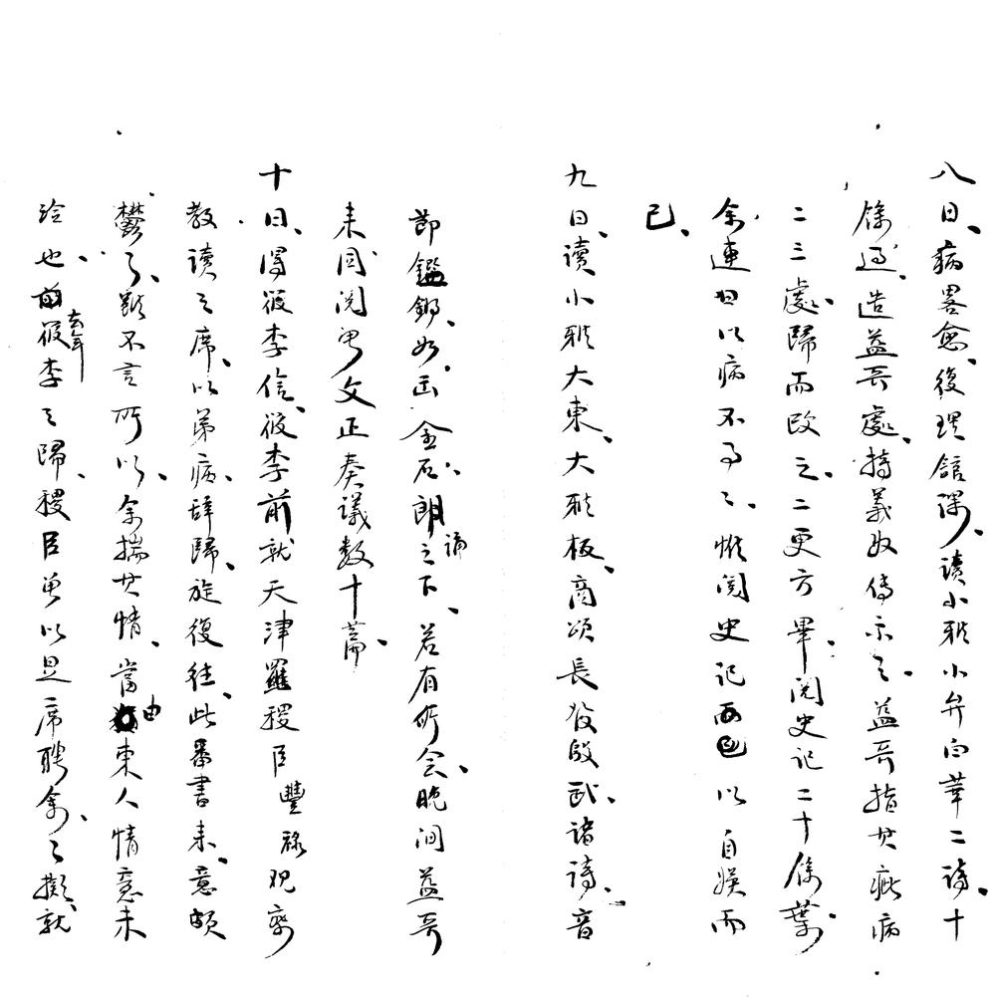 八日、病畧愈、復理舘課、讀小雅小弁白華二詩、十
餘過、造益哥處、持義奴傳示之、益哥指其疵病
二三處、歸而改之、二更方畢、閱史記二十餘葉、
余連日以病不事之、惟閱史記西 以自娛而
已、
九日、讀小雅大東、大雅板、商頌長發殷武、諸詩、音
節鏗鏘、如出金石、朗誦之下、若有所會、晚間益哥
來、同閱曾文正奏議數十篇、
十日、得筱李信、筱李前就天津羅稷臣豐祿觀察
教讀之席、以弟病、辭歸、旋復往、此番書來、意頗
鬱々、雖不言所以、余揣其情、當由東人情意未
洽也、去年筱李之歸、稷臣曾以是席聘余、々擬就